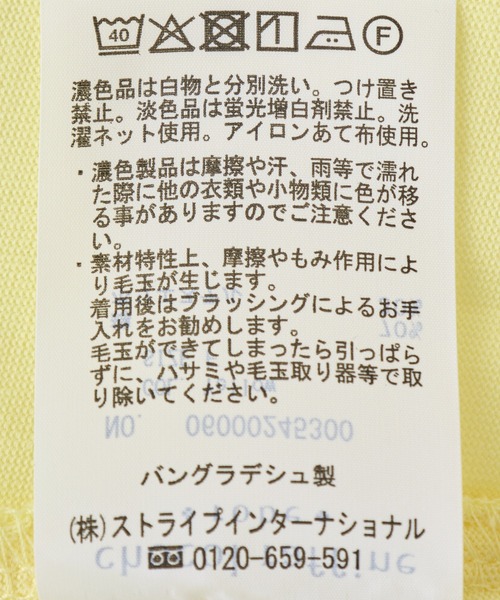 40 F
濃色品は白物と分別洗い。つけ置き
禁止。淡色品は蛍光増白剤禁止。洗
濯ネット使用。アイロンあて布使用。
・濃色製品は摩擦や汗、雨等で濡れ
た際に他の衣類や小物類に色が移
る事がありますのでご注意くださ
い。
・素材特性上、摩擦やもみ作用によ
り毛玉が生じます。
着用後はブラッシングによるお手
入れをお勧めします。
毛玉ができてしまったら引っぱら
ずに、ハサミや毛玉取り器等で取
り除いてください。
NO. 06000245300
バングラデシュ製
(株)ストライプインターナショナル
0120-659-591